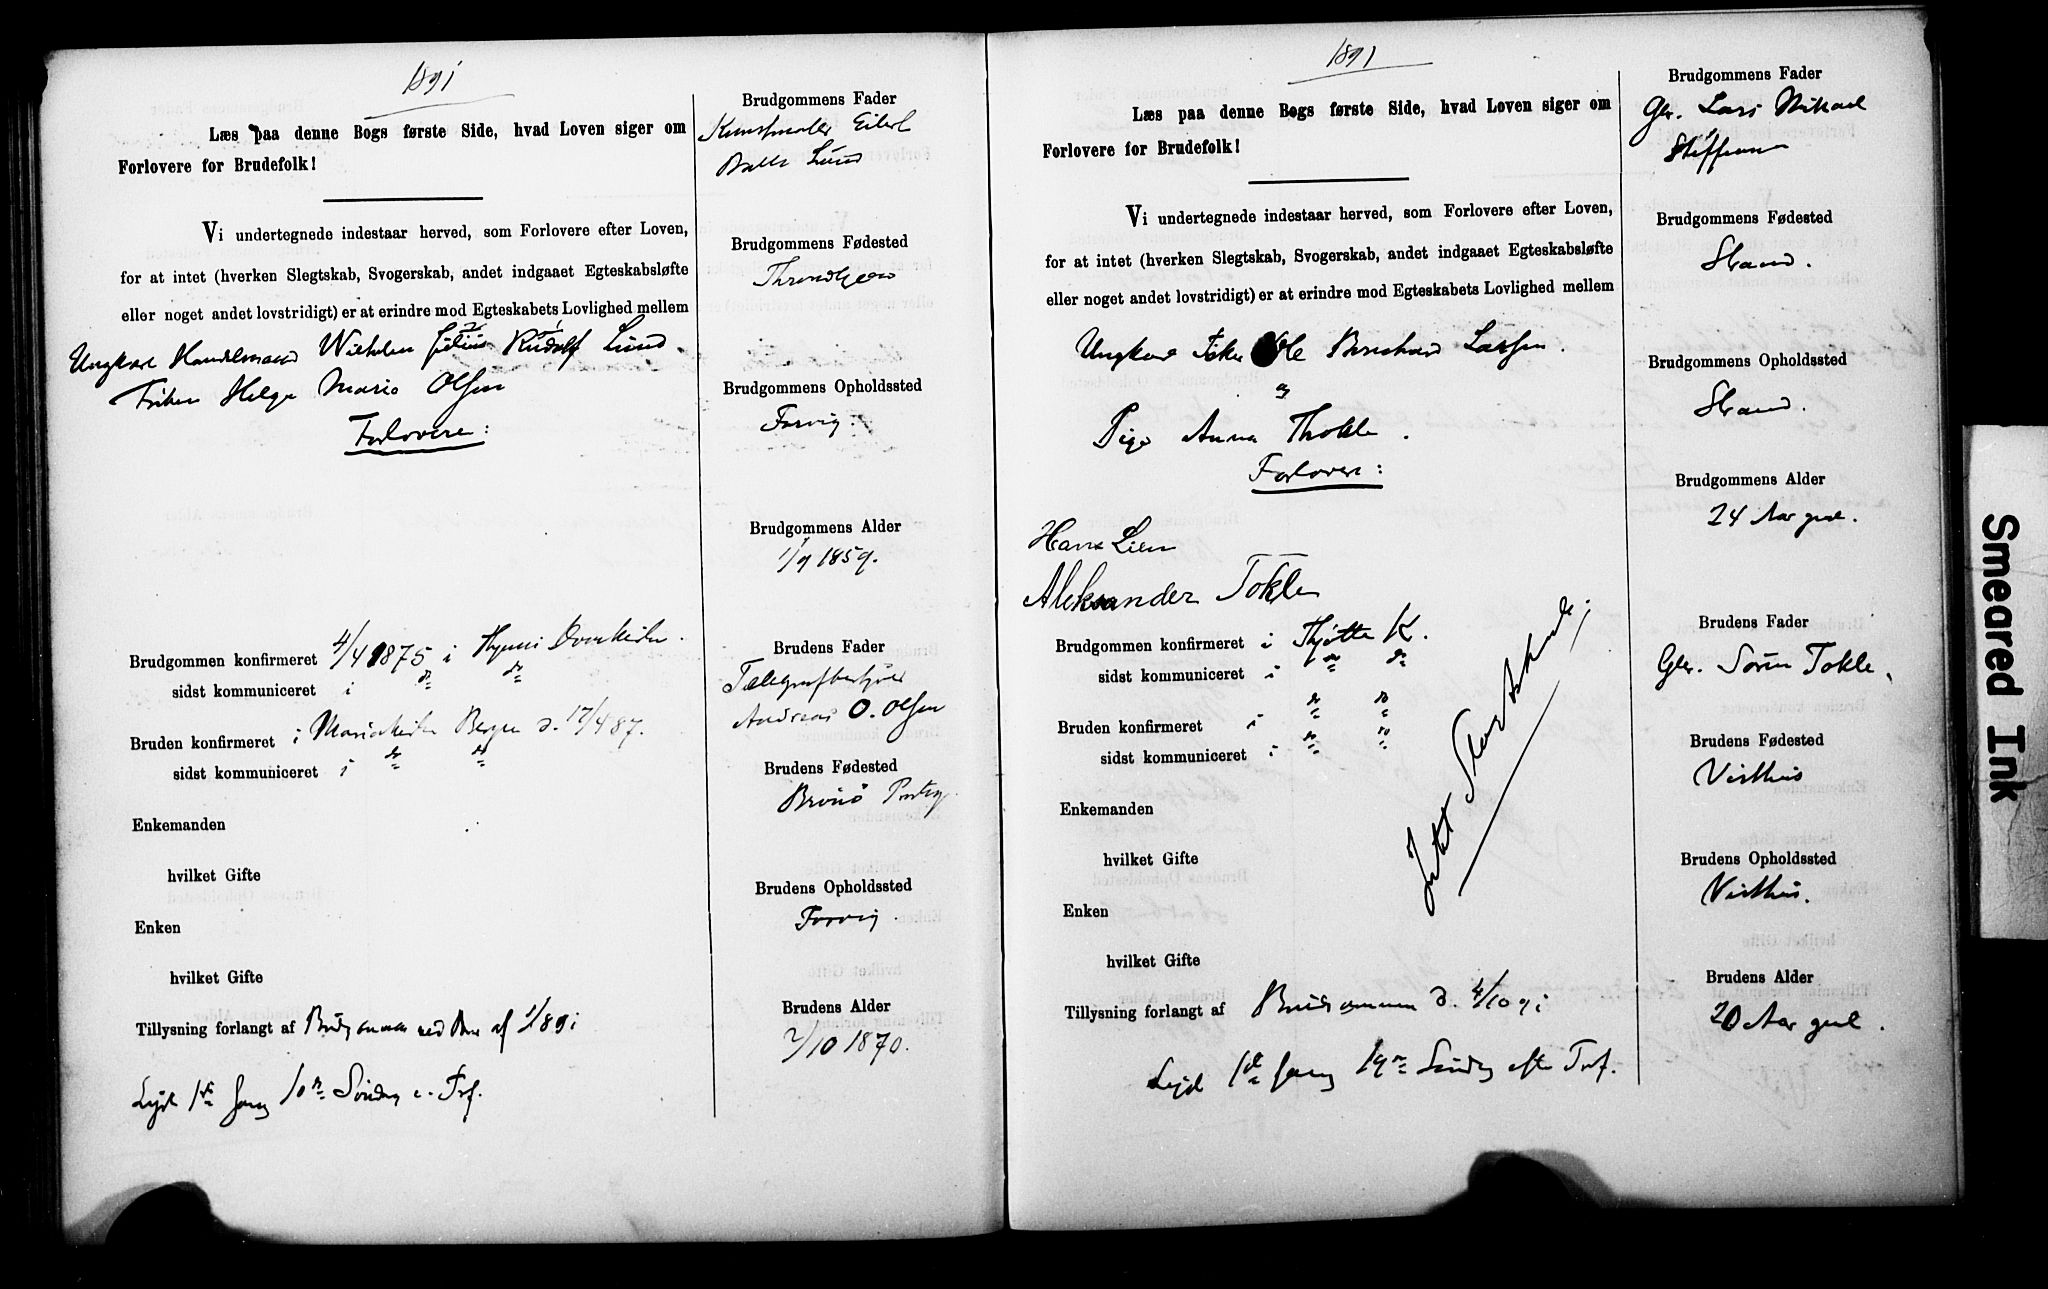 1891
Læs paa denne Bogs første Side, hvad Loven siger om
Forlovere for Brudefolk!
Vi undertegnede indestaar herved, som Forlovere efter Loven,
for at intet (hverken Slegtskab, Svogerskab, andet indgaaet Egteskabsløfte
eller noget andet lovstridigt) er at erindre mod Egteskabets Lovlighed mellem
Ungkarl Handelsmand Wilhelm Julius Rudolf Lund
Frøken Helga Maria Olsen
Forlovere:
Brudgommen konfirmeret 4/4 1875 i
sidst kommuniceret i do do
Bruden konfirmeret i Mariakirken Bergen d. 17/4 87.
sidst kommuniceret i do do
Enkemanden
hvilket Gifte
Enken
hvilket Gifte
Tillysning forlangt af Brudgommen ved Brev af
Lyst 1ste Gang 10de Søndag e. Tref.
Brudgommens Fader
Kunstmaler Eilert
Balle Lund
Brudgommens Fødested
Throndhjem
Brudgommens Opholdssted
Forvig.
Brudgommens Alder
1/9 1859.
Brudens Fader
Telegrafbestyrer
Andreas O. Olsen
Brudens Fødested
Brønø Præsteg.
Brudens Opholdssted
Forvig.
Brudens Alder
2/10 1870.
1891
Læs paa denne Bogs første Side, hvad Loven siger om
Forlovere for Brudefolk!
Vi undertegnede indestaar herved, som Forlovere efter Loven,
for at intet (hverken Slegtskab, Svogerskab, andet indgaaet Egteskabsløfte
eller noget andet lovstridigt) er at erindre mod Egteskabets Lovlighed mellem
Ungkarl Fisker Ole Bernhard Larsen.
og
Pige Anna Thokle.
Forlovere:
Hans Lien
Aleksander Tokle
Brudgommen konfirmeret i Thjøtta K.
sidst kommuniceret i do do
Bruden konfirmeret i do do
sidst kommuniceret i do do
Enkemanden
hvilket Gifte
Enken
hvilket Gifte
Intet
Tillysning forlangt af Brudgommen d. 4/10 91
Lyst 1ste Gang 19de Søndag efter Tref.
Brudgommens Fader
Gbr. Lars Mikael
Steffensen
Brudgommens Fødested
Strand.
Brudgommens Opholdssted
Strand.
Brudgommens Alder
24 Aar gml.
Brudens Fader
Gbr. Søren Tokle.
Brudens Fødested
Visthus
Brudens Opholdssted
Visthus.
Brudens Alder
20 Aar gml.
Smeared Ink